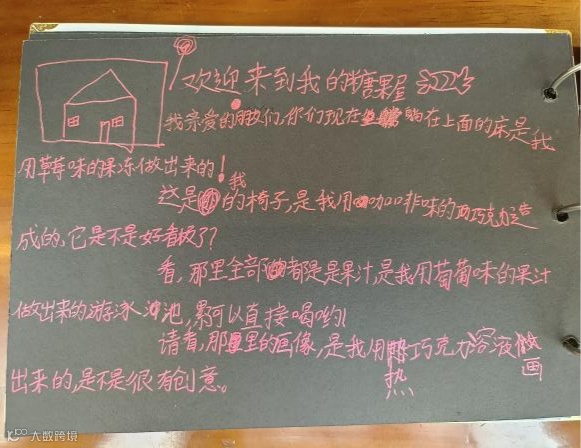 欢迎来到我的糖果屋
我亲爱的朋友们,你们现在躺在上面的床是我
用草莓味的果冻做出来的!
这是我的椅子,是我用咖啡味的巧克力造
成的,它是不是好看极了?
看,那里全部都是果汁,是我用葡萄味的果汁
做出来的游泳池,累可以直接喝哟!
请看,那里的画像,是我用热巧克力溶液画
出来的,是不是很有创意。
大数跨境